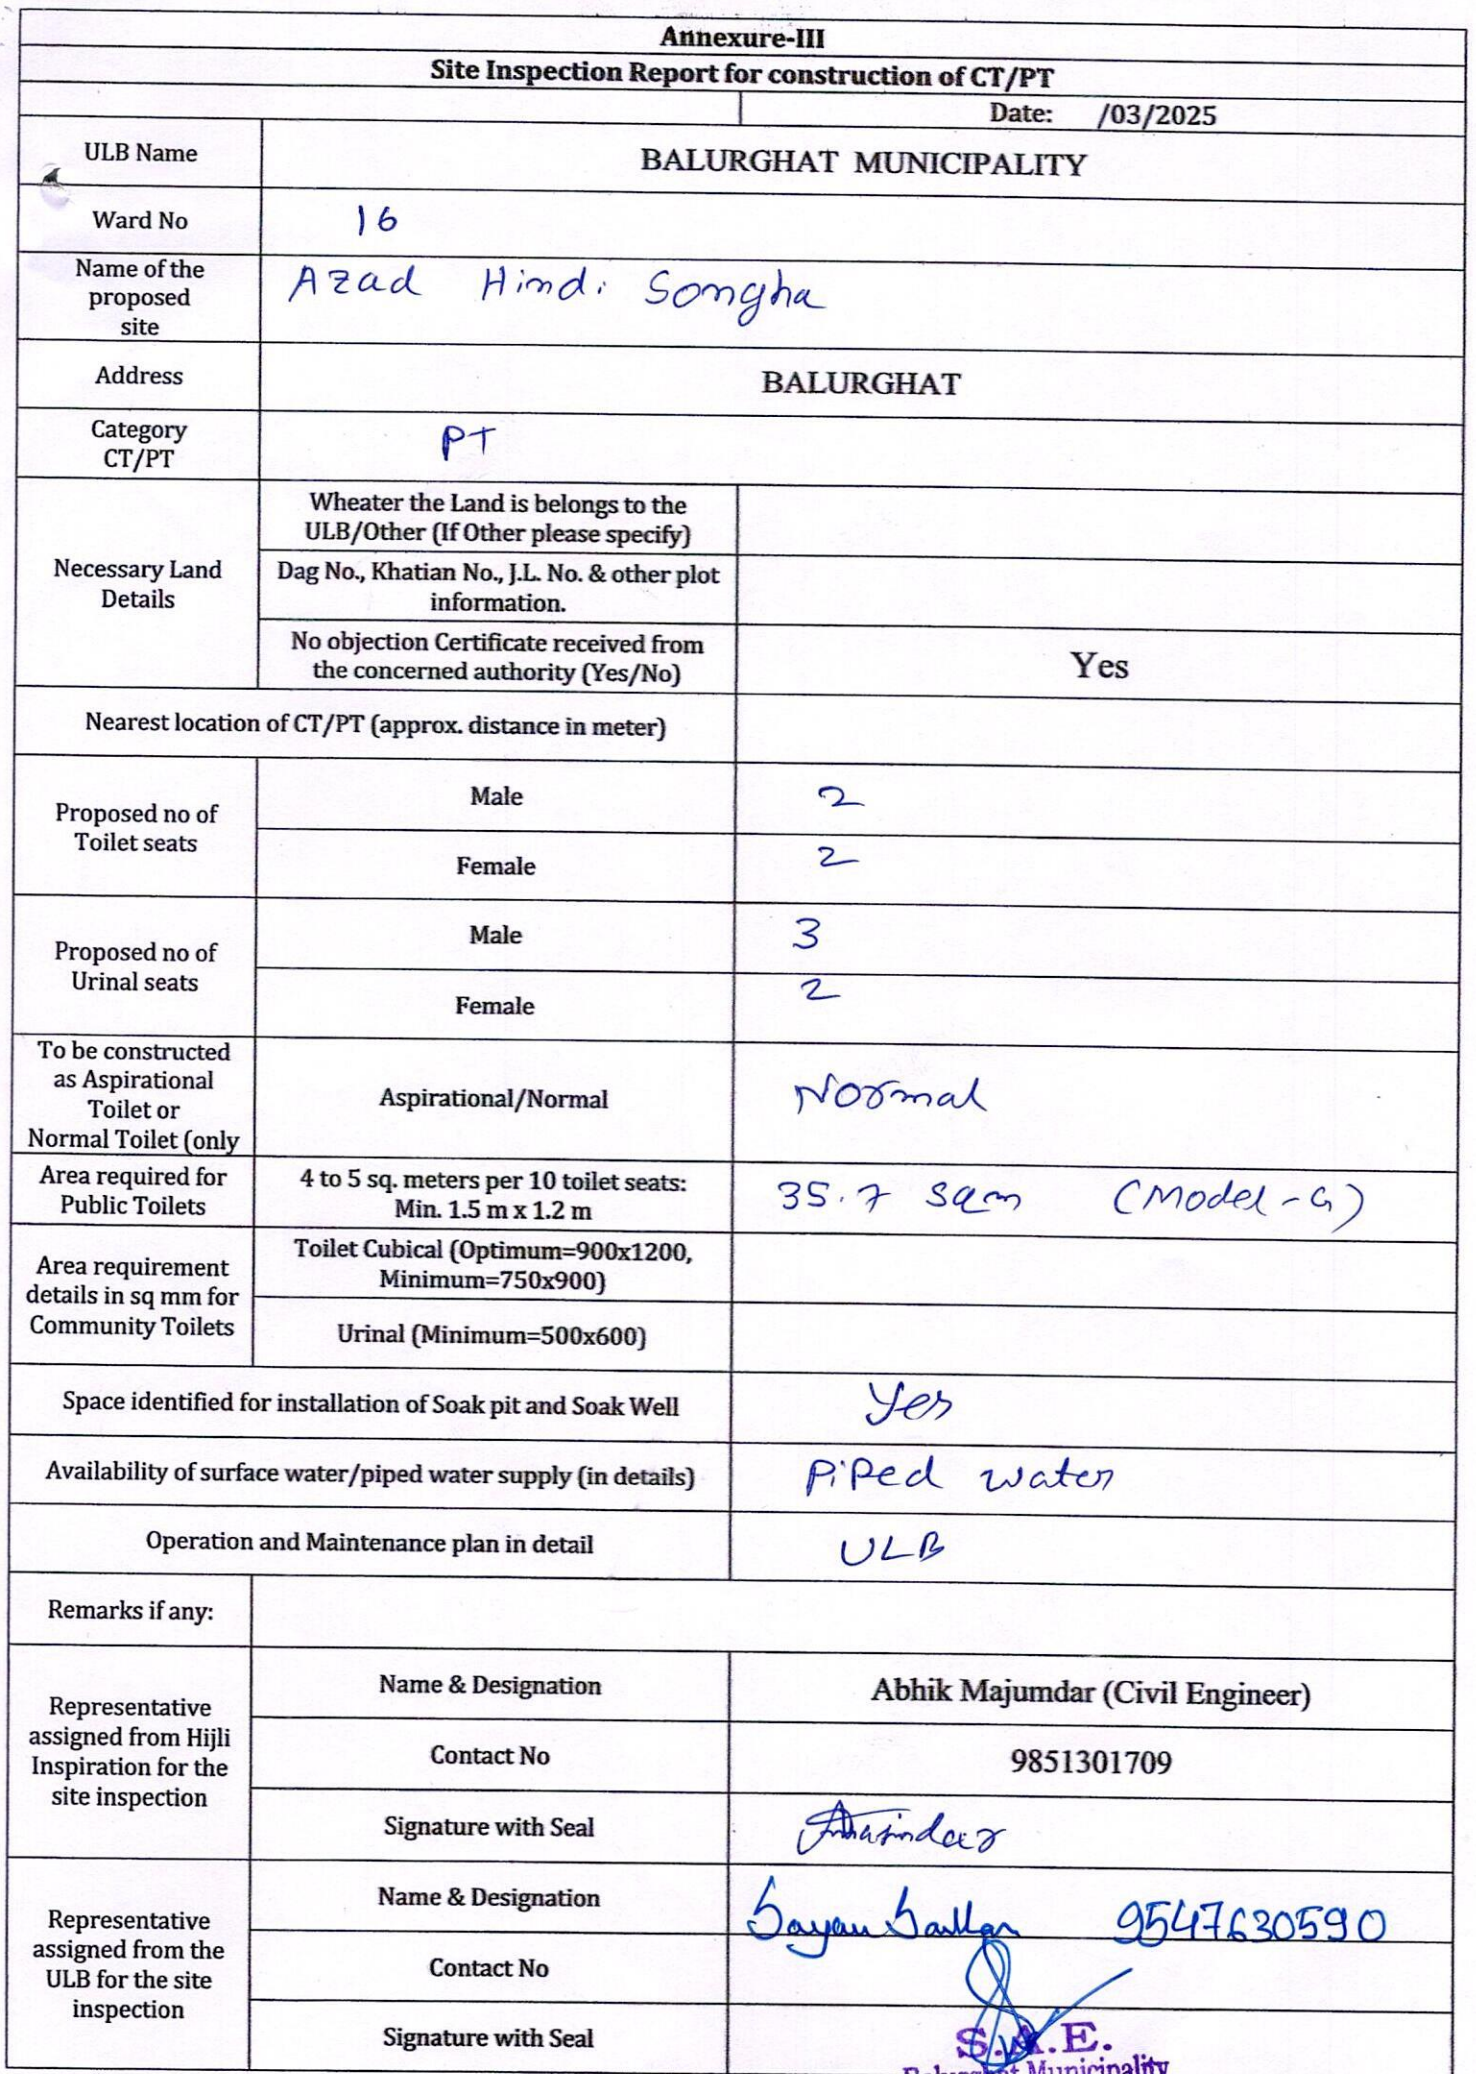 Annexure-III
Site Inspection Report for construction of CT/PT
Date: /03/2025
ULB Name
BALURGHAT MUNICIPALITY
Ward No
16
Name of the
proposed
site
Azad Hindi Songha
Address
BALURGHAT
Category
CT/PT
PT
Necessary Land
Details
Wheater the Land is belongs to the
ULB/Other (If Other please specify)
Dag No., Khatian No., J.L. No. & other plot
information.
No objection Certificate received from
the concerned authority (Yes/No)
Yes
Nearest location of CT/PT (approx. distance in meter)
Proposed no of
Toilet seats
Male
2
Female
2
Proposed no of
Urinal seats
Male
3
Female
2
To be constructed
as Aspirational
Toilet or
Normal Toilet (only
Aspirational/Normal
Normal
Area required for
Public Toilets
4 to 5 sq. meters per 10 toilet seats:
Min. 1.5 m x 1.2 m
35.7 sqm (Model-G)
Area requirement
details in sq mm for
Community Toilets
Toilet Cubical (Optimum=900x1200,
Minimum=750x900)
Urinal (Minimum=500x600)
Space identified for installation of Soak pit and Soak Well
Yes
Availability of surface water/piped water supply (in details)
Piped water
Operation and Maintenance plan in detail
ULB
Remarks if any:
Representative
assigned from Hijli
Inspiration for the
site inspection
Name & Designation
Abhik Majumdar (Civil Engineer)
Contact No
9851301709
Signature with Seal
Representative
assigned from the
ULB for the site
inspection
Name & Designation
Sayan 9547630590
Contact No
Signature with Seal
S.A.E.
Balurghat Municipality